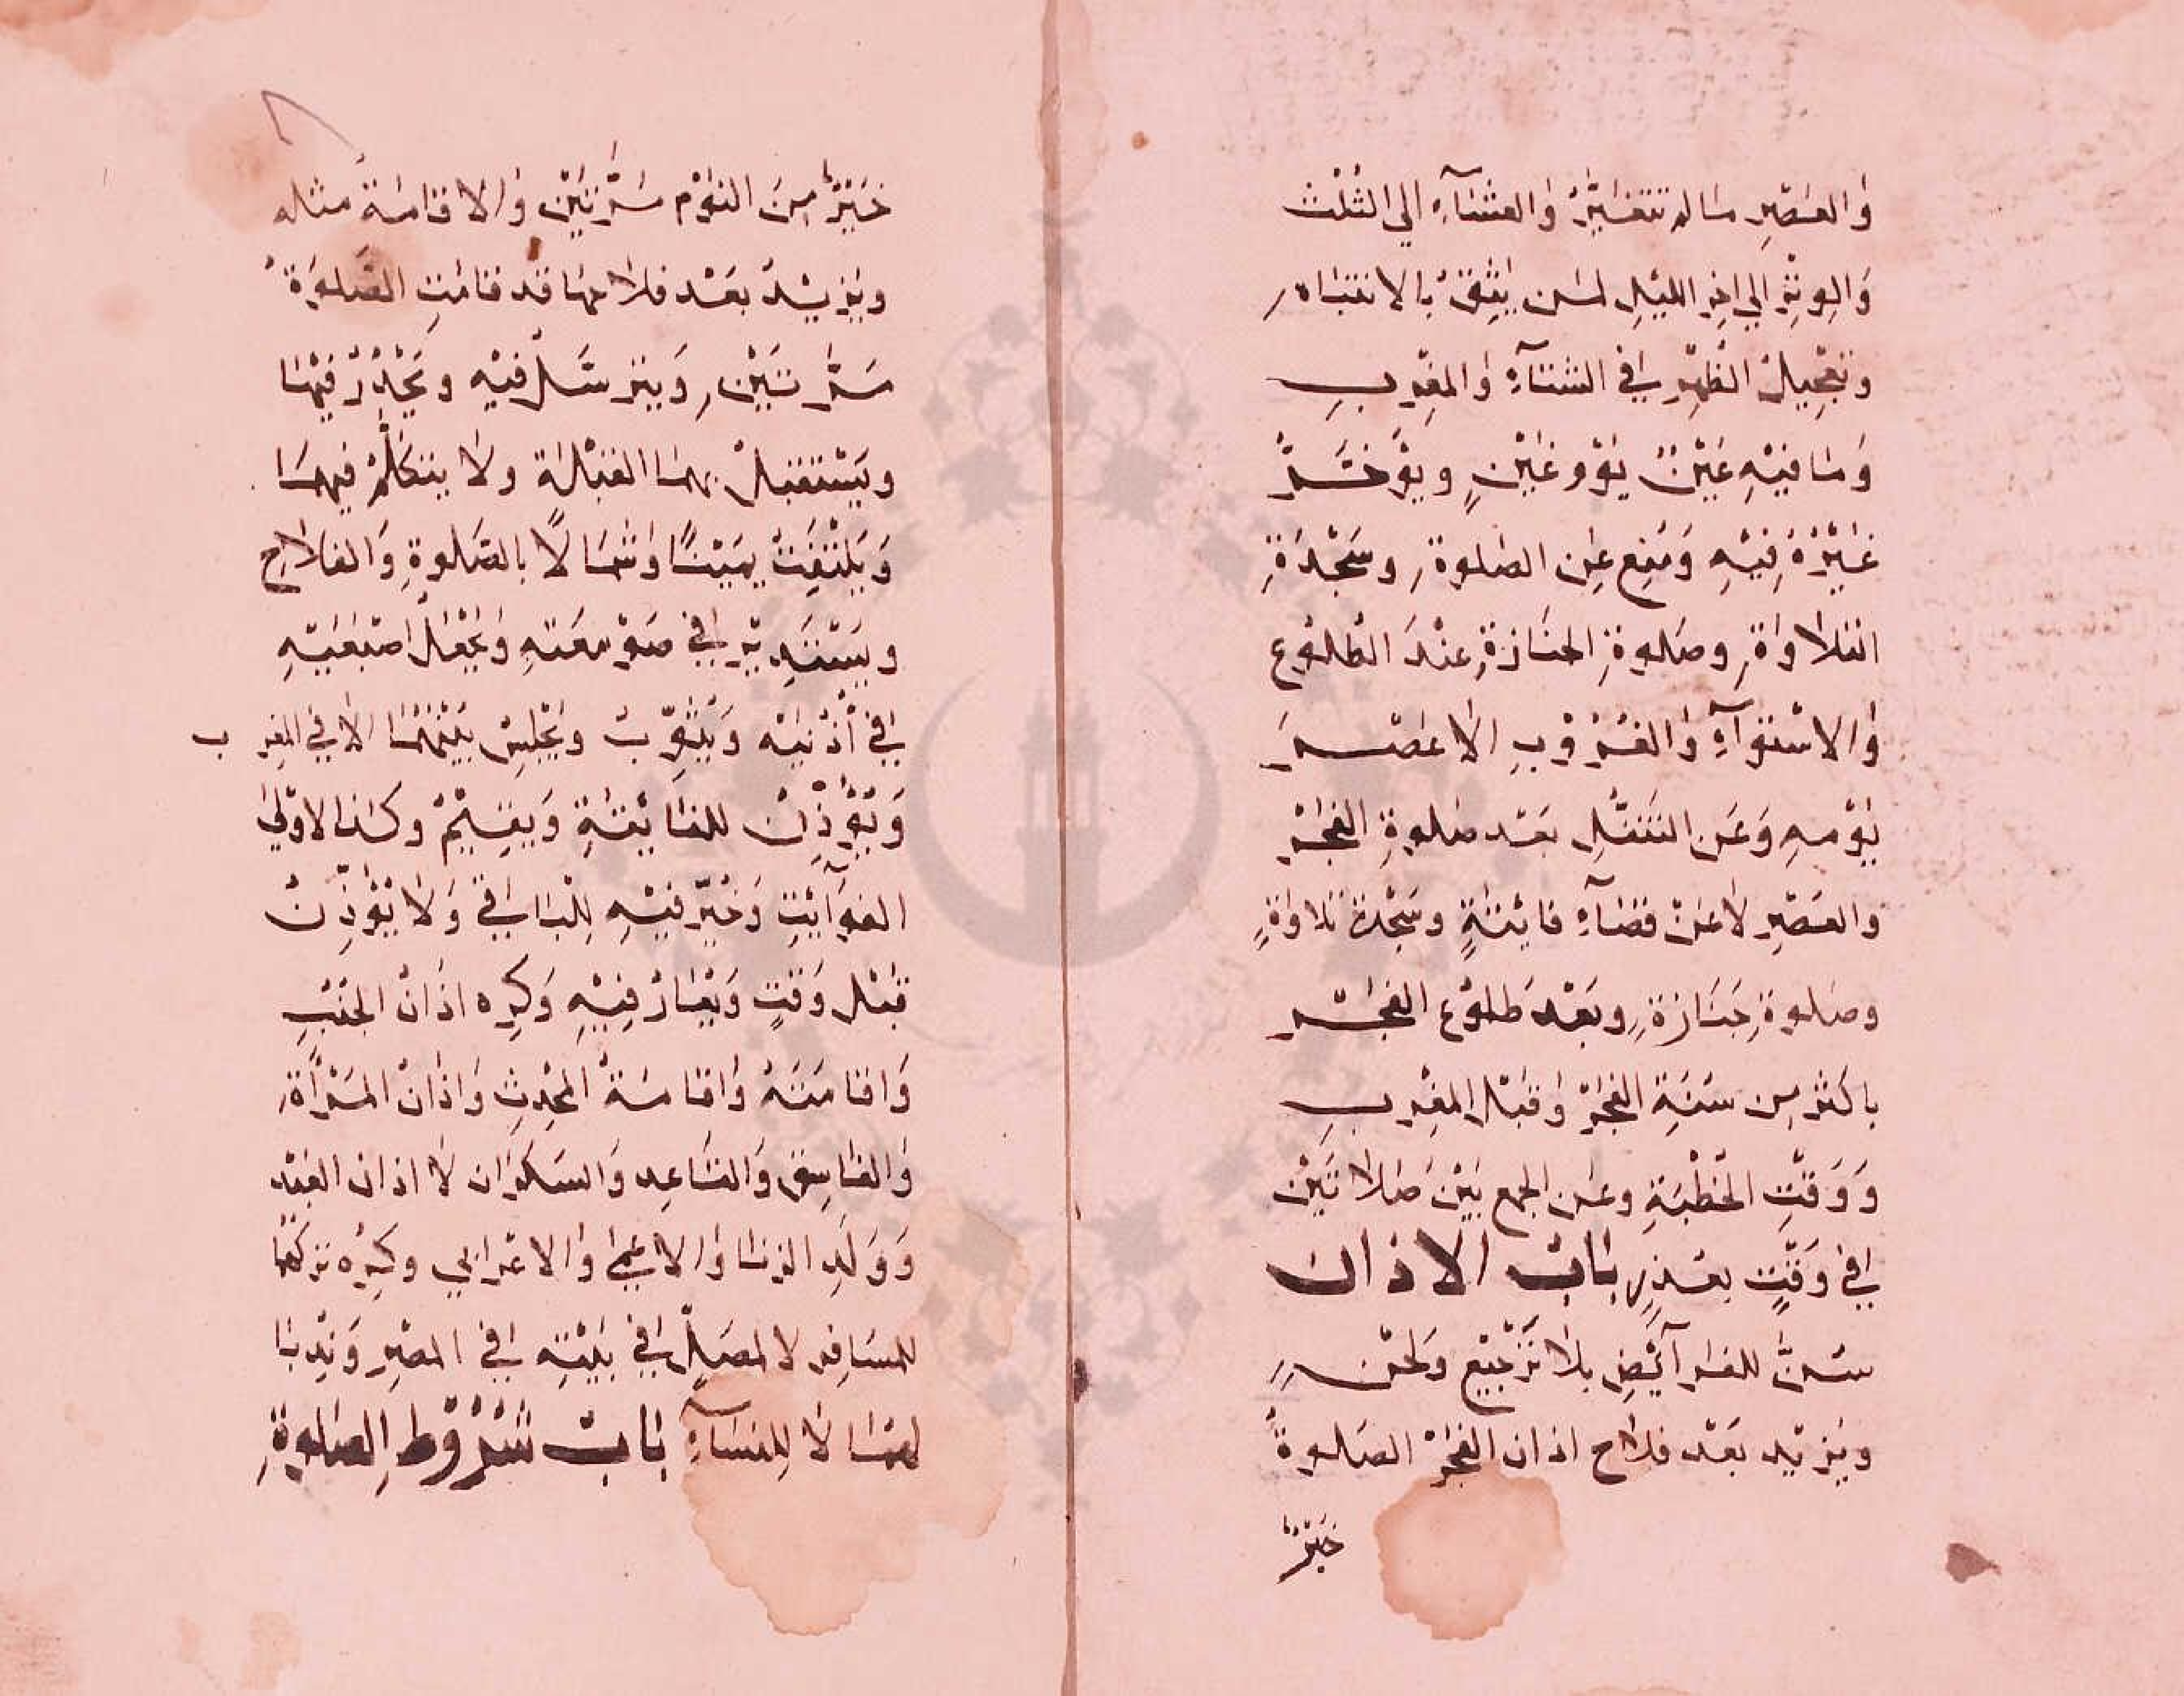 وَالعَصْرِ مَا لم تتغَيَّرْ وَالعِشَآءِ الي الثُلْث
وَالوِتْرِ الي اخِرِ الليْلِ لمَن يَثِقُ بالانتبَاهِ
وتعْجِيلُ الظُهْرِ في الشتَآءِ وَالمغْرِبِ
وَمَا فيْهِ عَيْنٌ يوْمَ غَيْنٍ ويؤخَّرُ
غيْرُهُ فِيْهِ وَمُنِع عَنِ الصلوةِ وسَجْدَةِ
التلاوَةِ وصَلوةِ الجنَازةِ عنْدَ الطُلوْعِ
وَالاسْتوَآءِ وَالغُرُوْبِ الاعَصْرَ
يَوْمهِ وَعَن التنَفُّلِ بَعْد صَلوةِ الفَجْرِ
والعَصْرِ لاعَنْ قضَآءِ فايتَةٍ وسَجْدة تلاوَةٍ
وصَلوةِ جَنَازةٍ وبَعْد طلوْع الفجْرِ
باكثر مِن سُنَةِ الفجْرِ وَقبْل المغْرِبِ
وَوَقْتِ الخُطْبَةِ وعَن الجمع بَيْنَ صَلاتَيْن
في وَقْتٍ بعذرٍ بَابُ الاذان
سُنَّ للفرآيْضِ بلا تَرْجِيْعٍ وَلحنٍ
ويزيْد بَعْد فلاح اذان الفَجْرِ الصَلوةُ
خَيْرٌ
خَيْرٌ مِنَ النوْم مَرَّتيْن وَالاقَامَةُ مثله
ويزيْدُ بعَْد فلاحهَا قد قامَتِ الصَلوَةُ
مَرَّتيْنِ وَيترسَّلُ فيْه ويَحْدُرُ فيْهَا
ويَسْتقبلُ بهمَا القبْلةَ ولا يتكلمُ فيهمَا
وَيَلتْفِتُ يميْنًا وَشمَالًا بالصَلوةِ وَالفلاحِ
ويسْتَدِيْر في صَوْمعَتهِ وَيجْعَلُ اصْبُعَيْهِ
في أذْنيْه وَيُثَوِّبُ ويَجْلِسُ بَيْنهُمَا الا في المغرب
وَيُؤَذِّنُ للفَايْتَةِ وَيقِيْمُ وكذا لاوْلي
الفوَآيْتِ وَخُيِّرَ فيْهِ لِلْبَاقي وَلا يُؤَذِّنُ
قبْل وَقتٍ وَيُعَادُ فِيْهِ وَكرِه اذَانُ الجُنُبِ
وَاقامَتَهُ وَاقامَةُ المُحْدِثِ وَاذَانُ المَرْأةِ
وَالفاسِقِ وَالقَاعِدِ وَالسَكرَان لا اذان العَبْد
وَوَلَدِ الزنَا وَالاعْمي وَالاعْرابي وكرِهَ تركهُمَا
للمسَافِر لا لمصَلٍّ في بَيْتِه في المصْرِ وَندِبَا
لهمَا لا لِلنسَآءِ بَابُ شُرُوْطِ الصَلوةِ